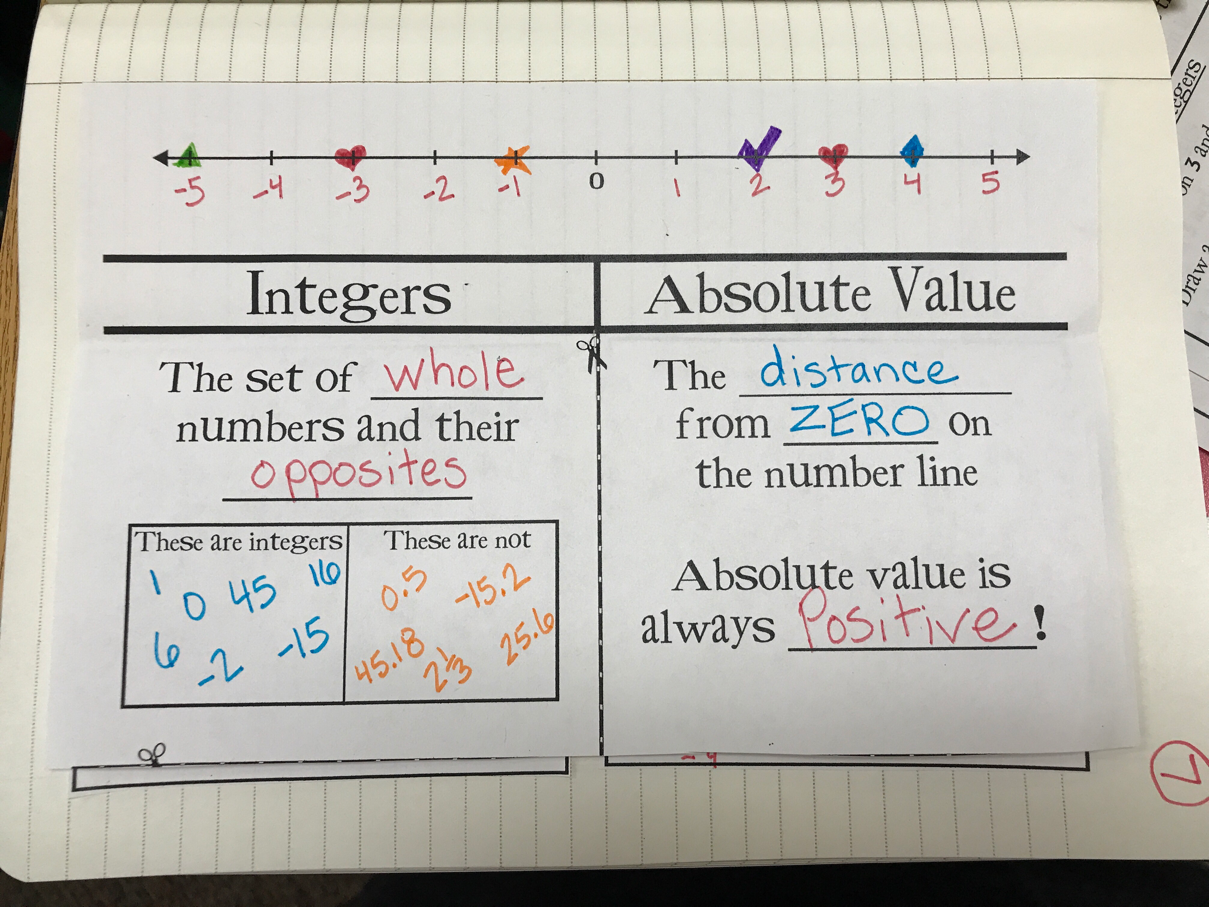 -5 -4 -3 -2 -1 0 1 2 3 4 5
Integers
Absolute Value
The set of whole
numbers and their
opposites
These are integers
1 0 45 16
6 -2 -15
These are not
0.5 -15.2
45.18 2 1/3 25.6
The distance
from ZERO on
the number line
Absolute value is
always Positive!
-4
egers
on 3 and
Draw a